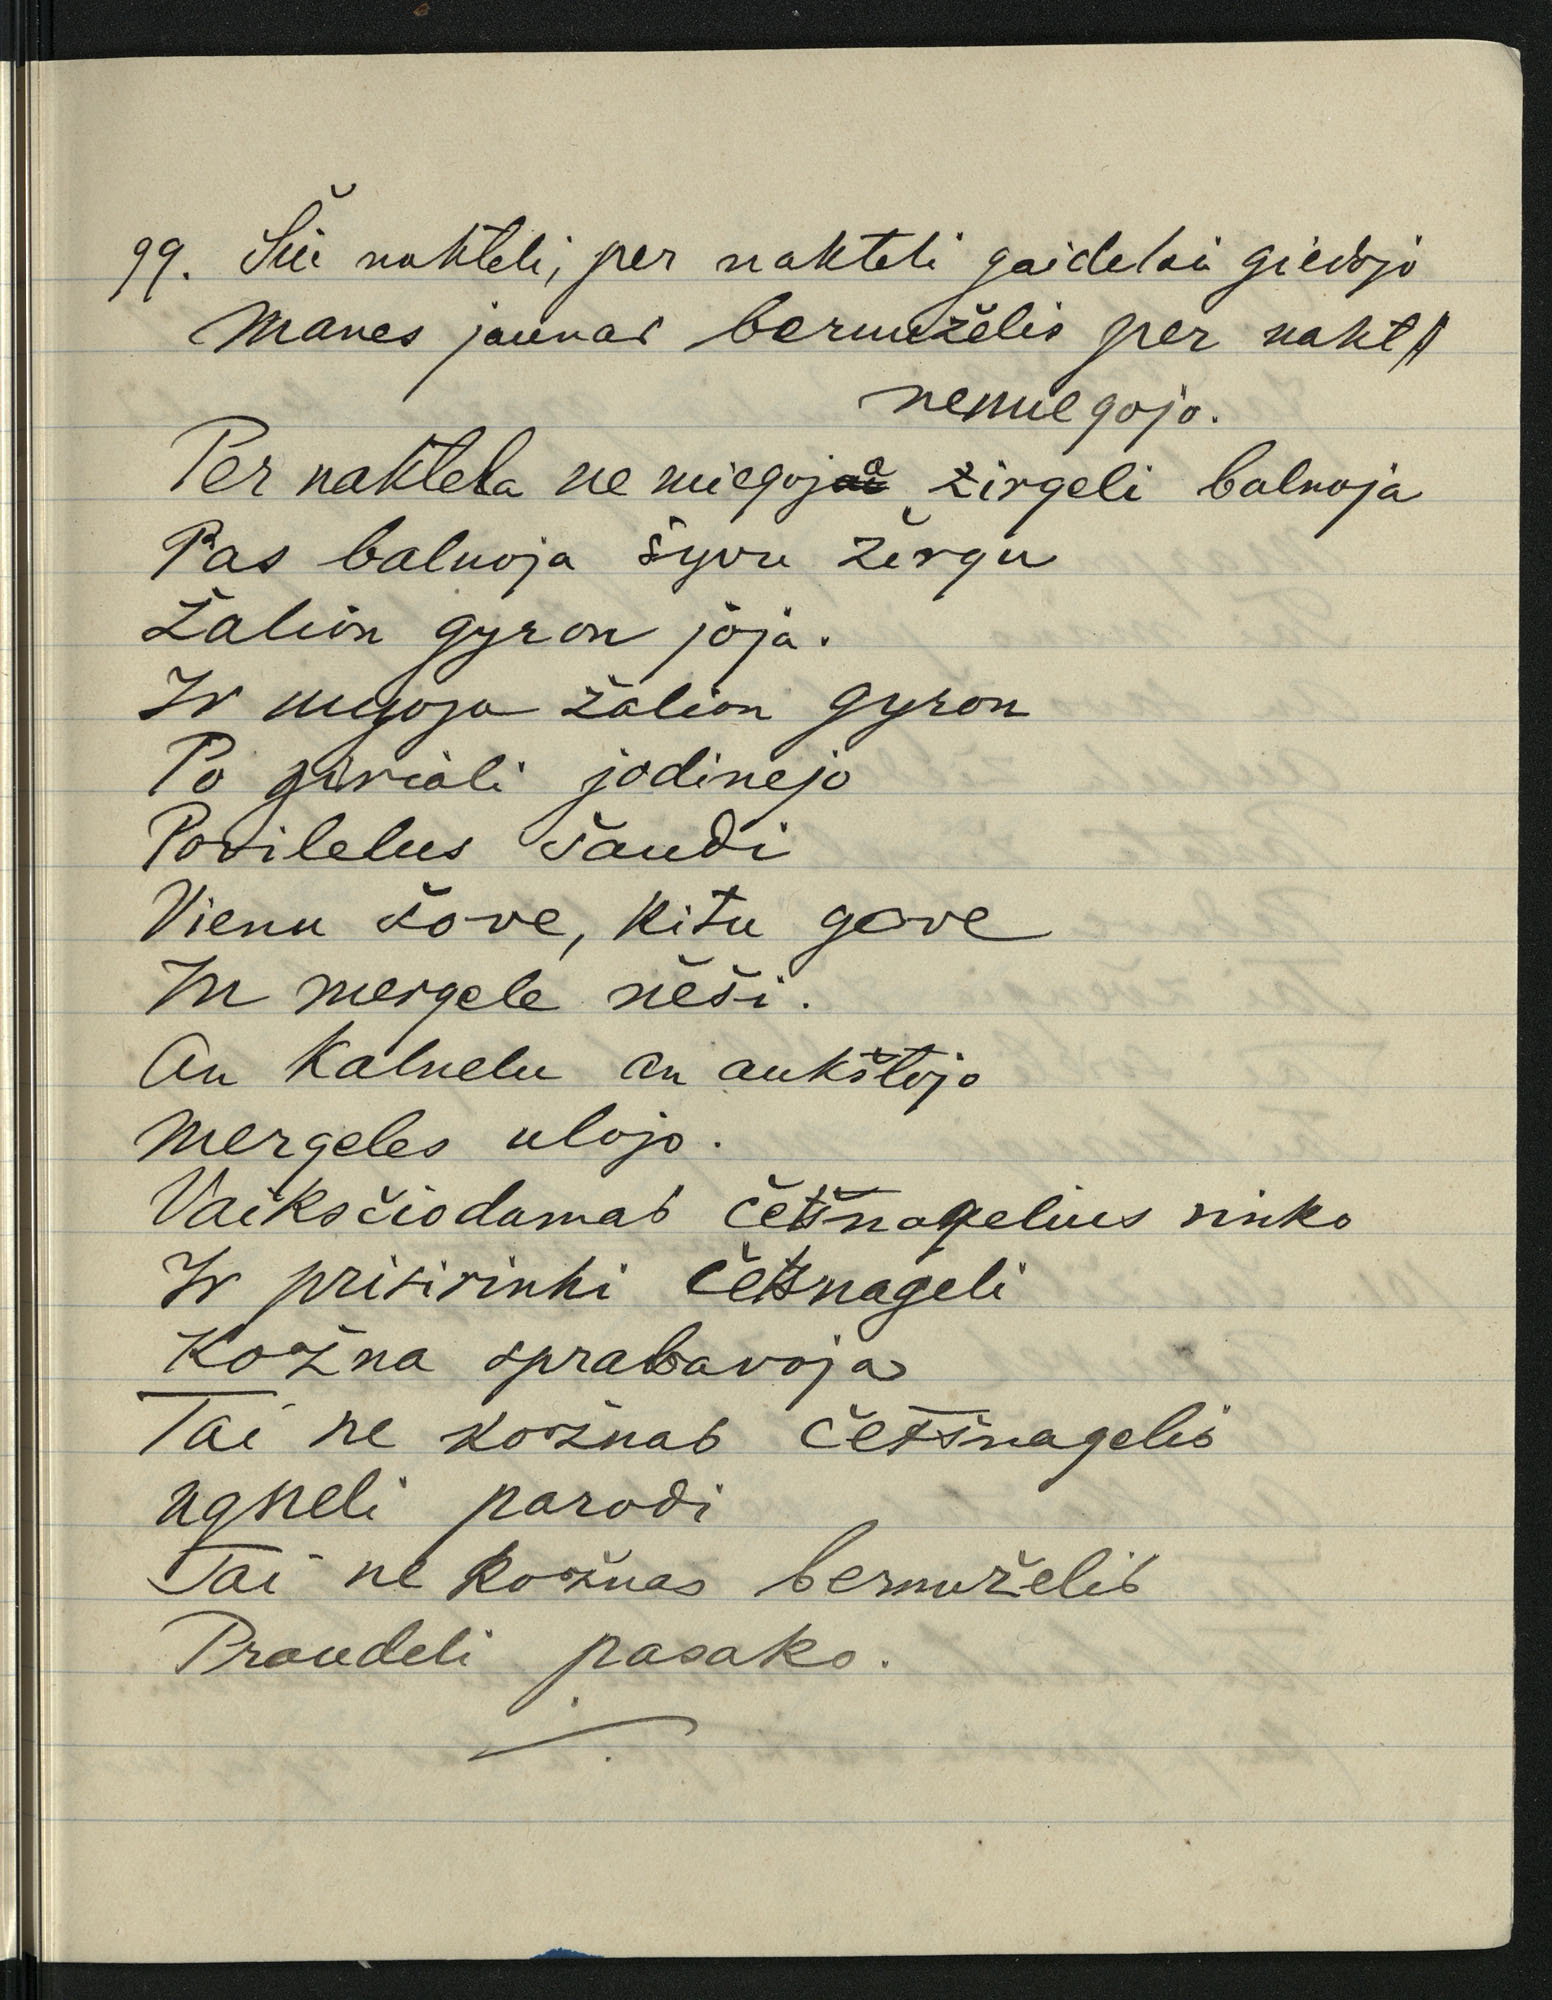 99. Šiu nakteli, per nakteli gaidelai giedojo
Manes jaunas bernuželis per nakt
nemiegojo.
Per naktela ne miegoja žirgeli balnoja
Pas balnoja šyvu žirgu
Žalion gyron joja.
Ir nujoja žalion gyron
Po giriali jodinejo
Povilelus šaudi
Vienu šove, kitu gove
In mergele neši.
An kalnelu an aukštojo
Mergeles ulojo.
Vaiksčiodamas češnagelius rinko
Ir prisirinki češnageli
Kožna sprabavoja
Tai ne kožnas češnagelis
ugneli parodi
Tai ne kožnas bernuželis
Praudeli pasako.